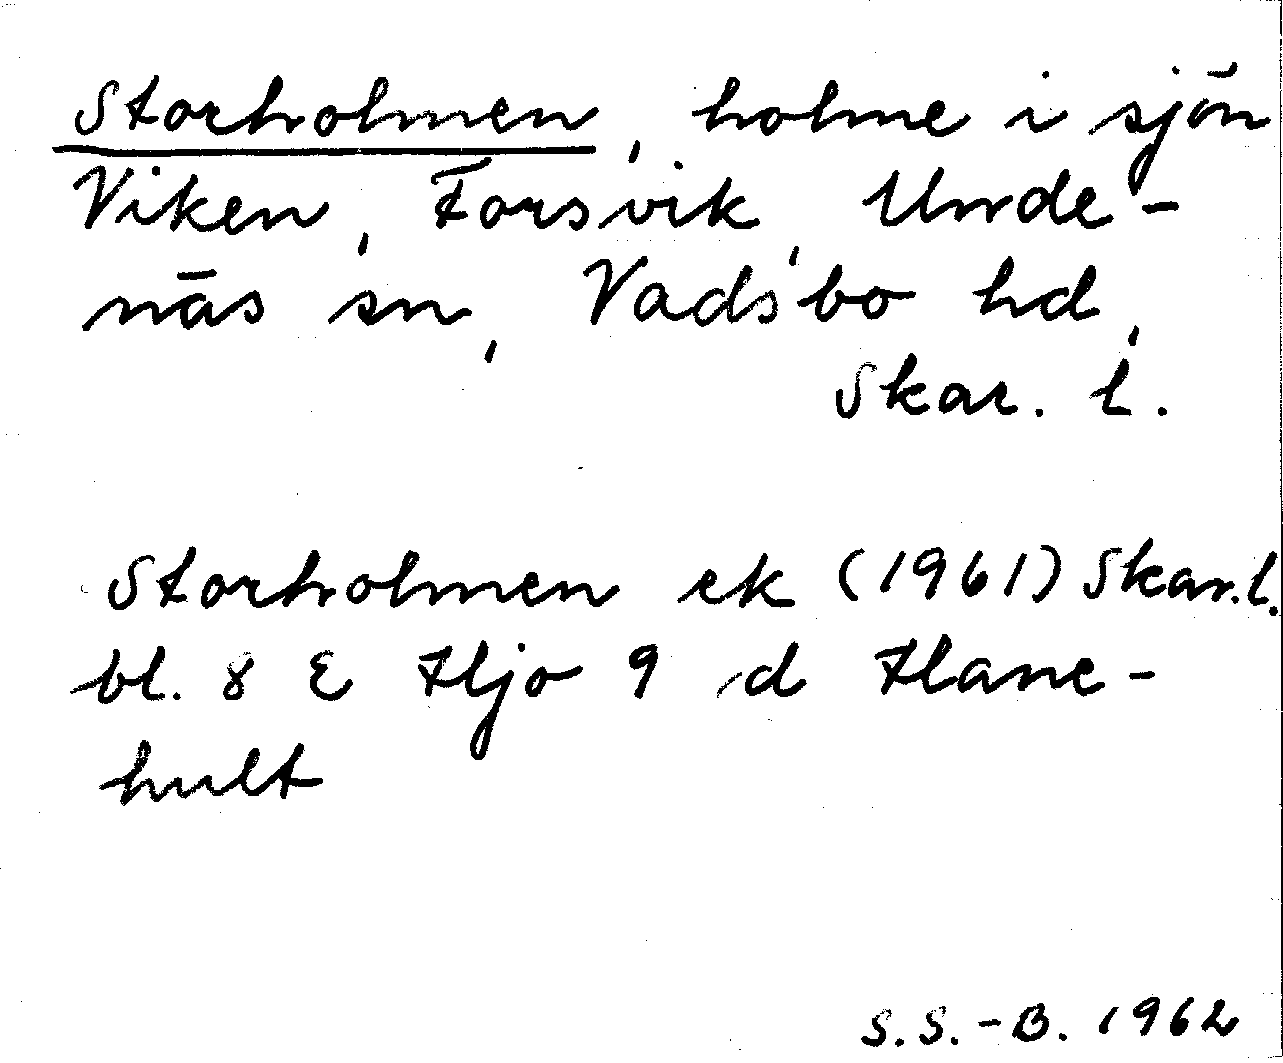 Storholmen, holme i sjön
Viken, Forsvik, Unde-
näs sn, Vadsbo hd,
Skar. l.
Storholmen ek (1961) Skar. l.
bl. 8 E Hjo 9 d Hane-
hult
S.S.-B. 1962